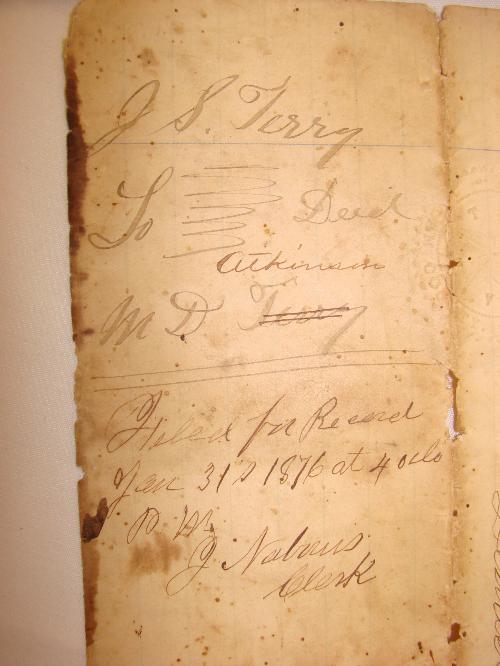 J S. Terry
To Deed
Atkinson
M D Terry
Filed for Record
Jan 31st 1876 at 4 oclo
P. M.
J Nabours
Clerk